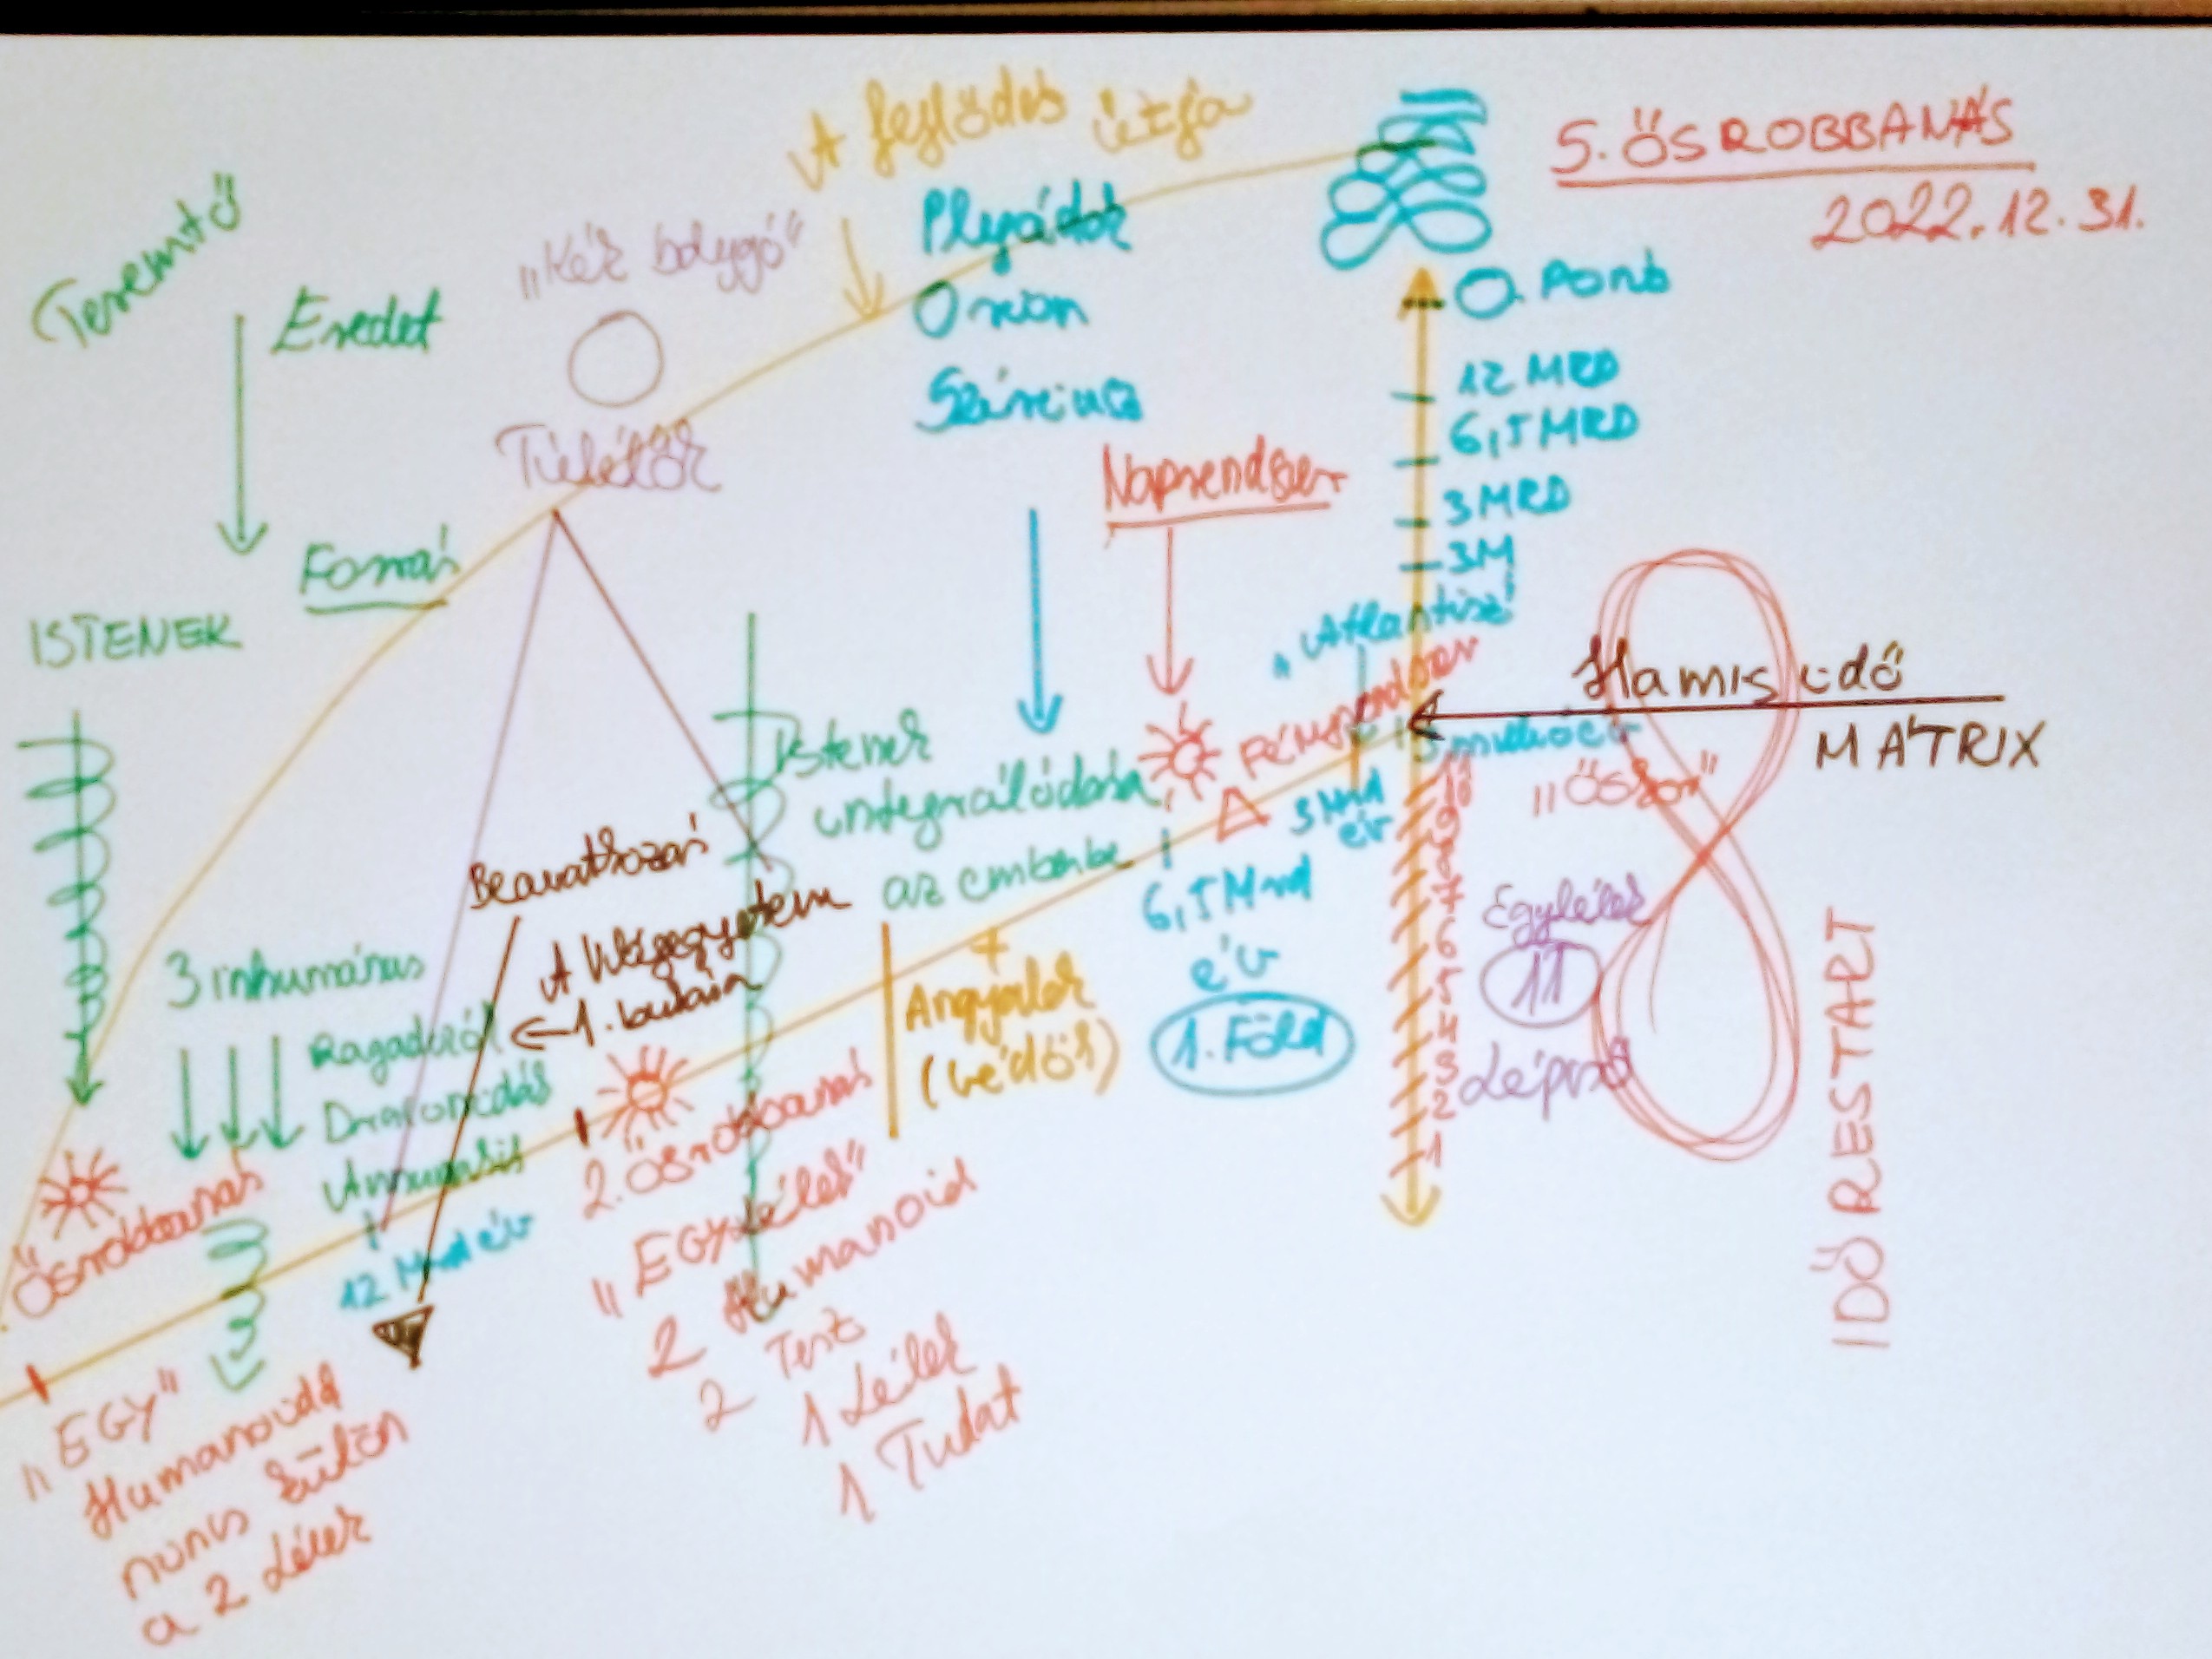 A fejlödés útja
5. ŐSROBBANÁS
2022.12.31.
Teremtő
Eredet
"Kék bolygó"
Plejádok
Orion
Szíriusz
0. Pont
12 MRD
6,5 MRD
3 MRD
3M
Túlélők
Naprendszer
Forrás
ISTENEK
"Atlantisz"
Fényrendszer
Hamis idő
MÁTRIX
Istenek
integrálódása
az emberbe
3 Mrd
év
"Őskor"
Beavatkozás
A Világegyetem
1. bukása
6,5 Mrd
év
1. Föld
+
Angyalok
(védők)
11
10
9
8
7
6
5
4
3
2
1
Egylélek
11
Lépcső
IDŐ RESTART
3 inhumánus
Ragadozó
Drakonidás
Annunakik
Ősrobbanás
12 Mrd év
2. Ősrobbanás
"EGYLélek"
2 Humanoid
2 Test
1 Lélek
1 Tudat
"EGY"
Humanoidd
nincs külön
a 2 Lélek